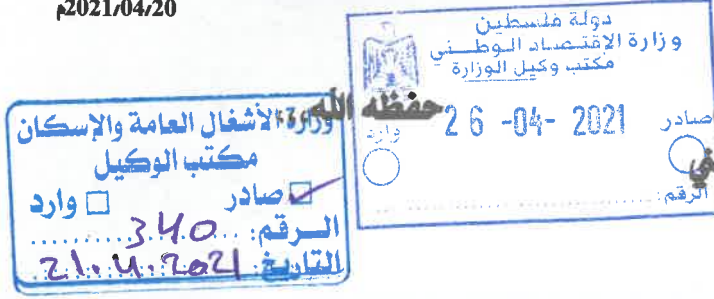 2021/04/20م
دولة فلسطين
وزارة الإقتصاد الوطني
مكتب وكيل الوزارة
صادر 26 -04- 2021 وارد
الرقم:
حفظه الله،،،
وزارة الأشغال العامة والإسكان
مكتب الوكيل
صادر وارد
الرقم: 340
التاريخ: 21.4.2021